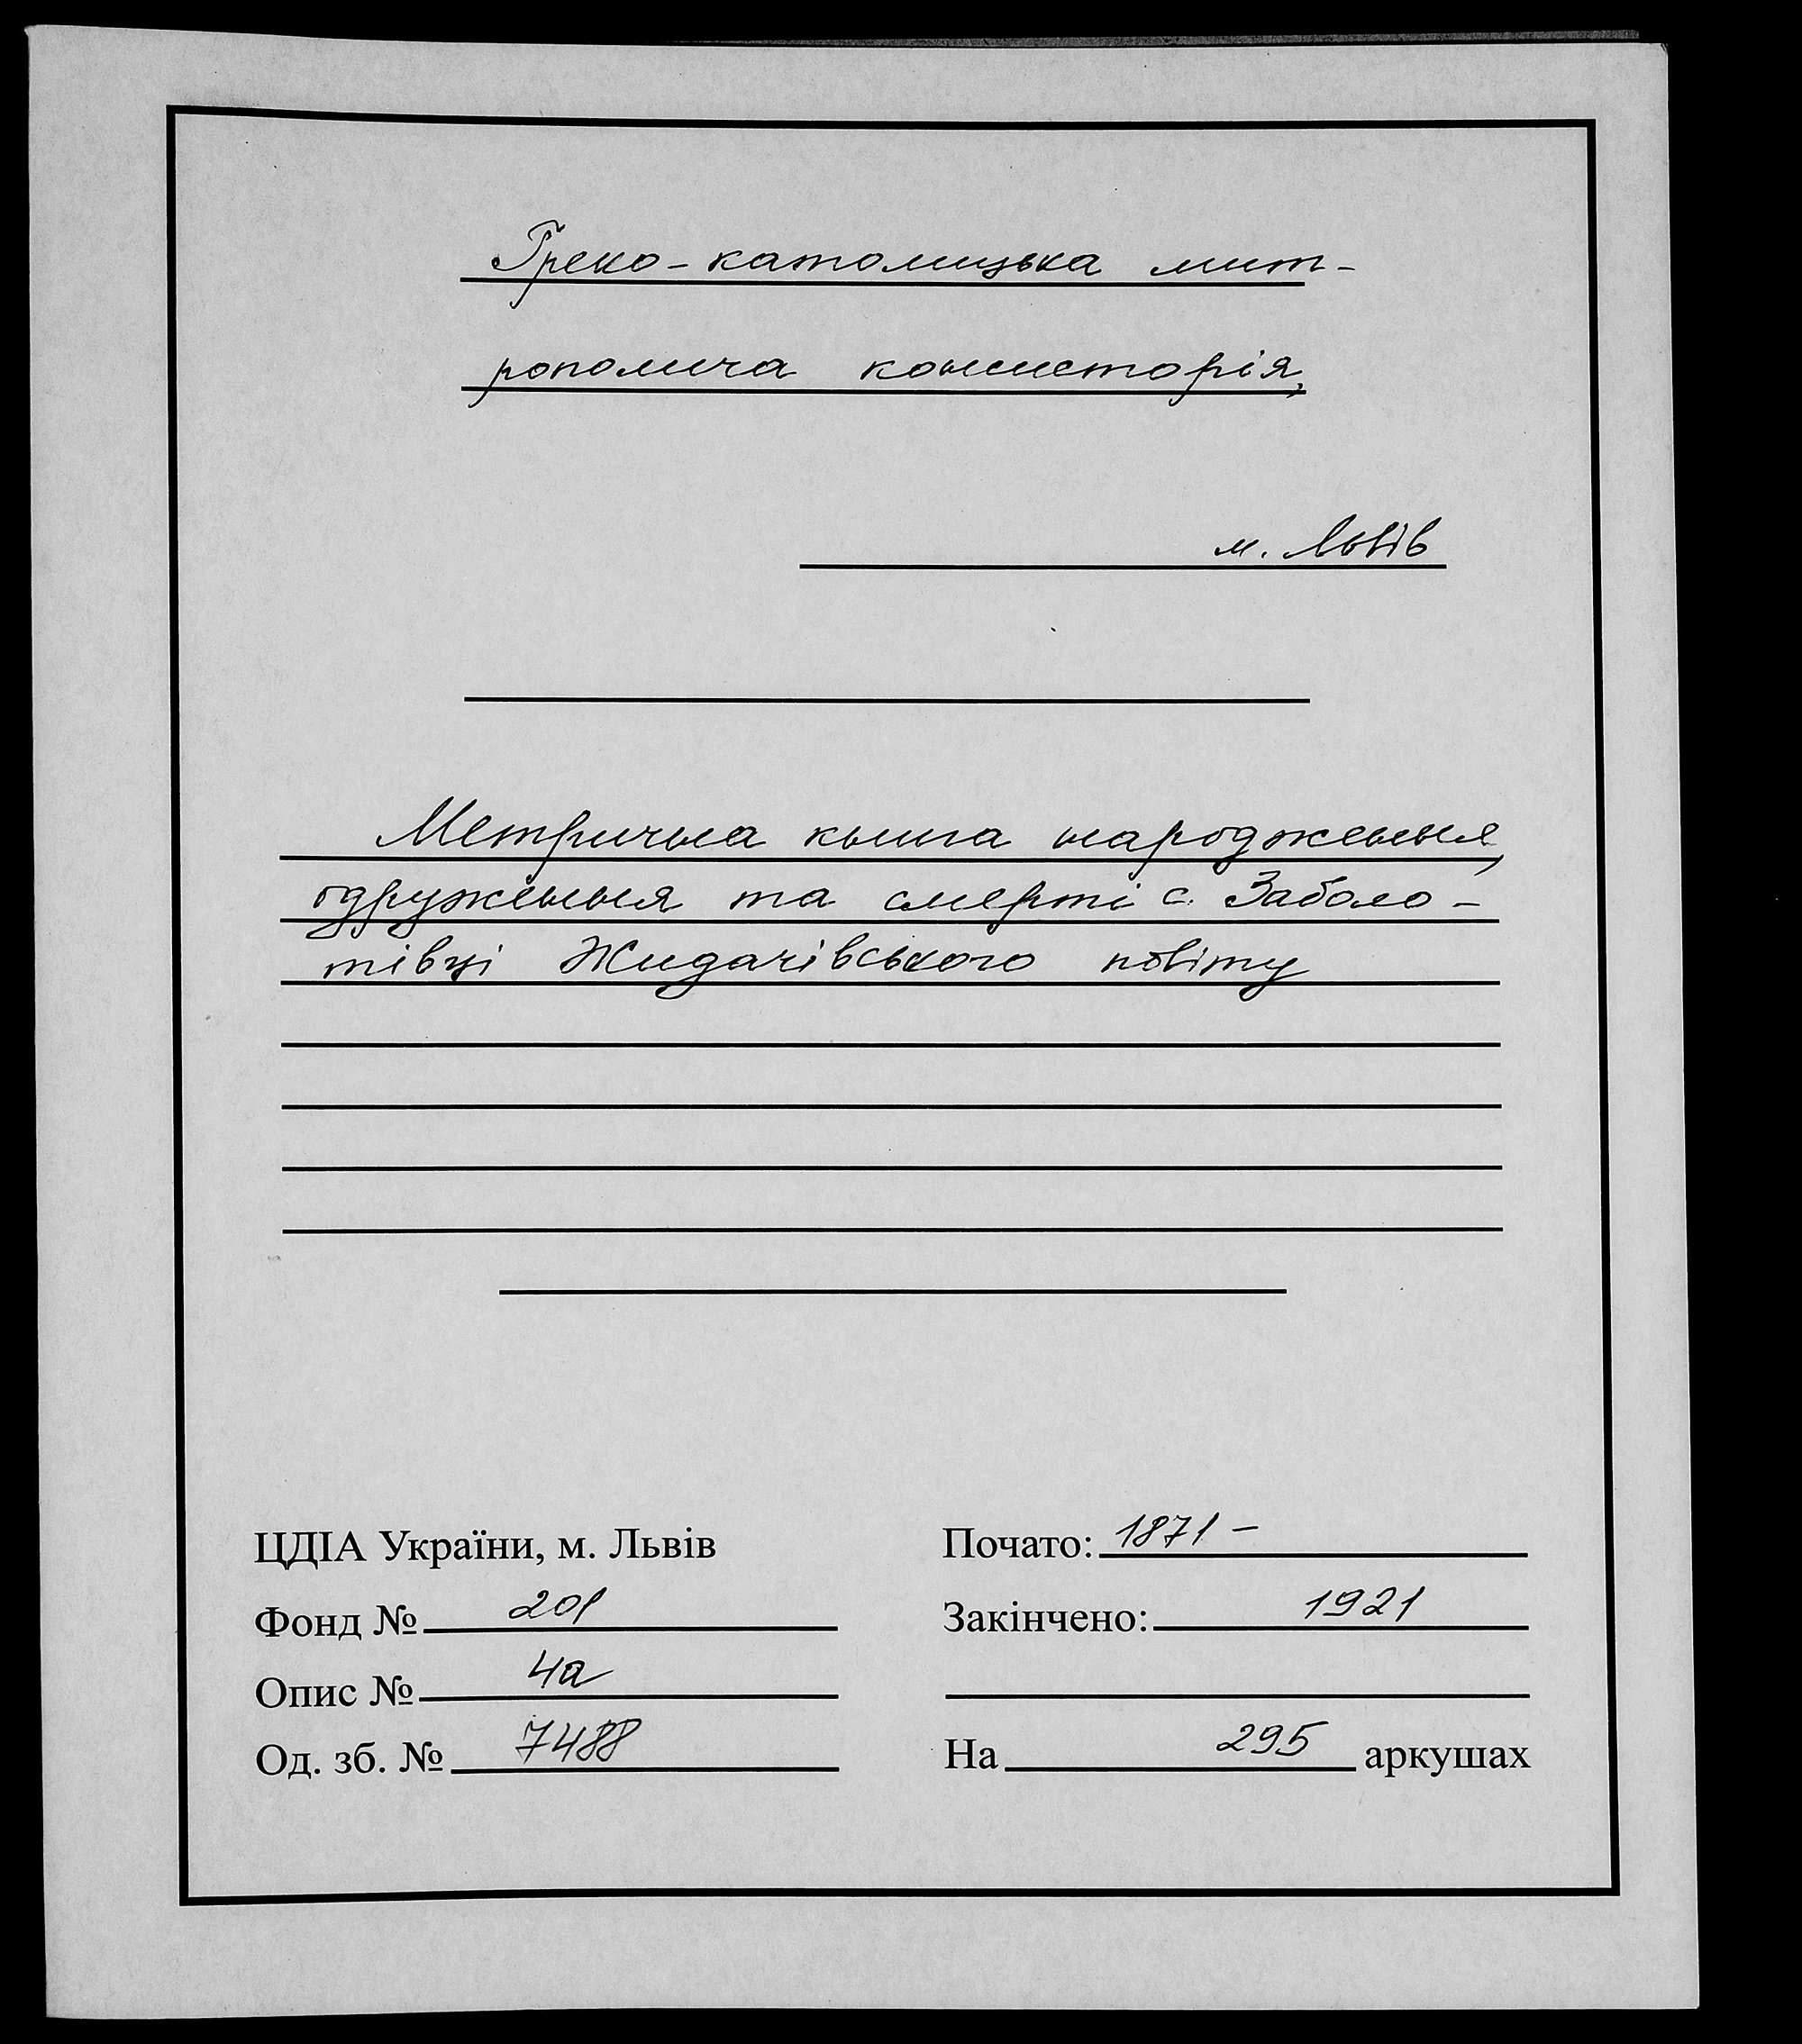 Греко-католицька мит-
рополича консисторія,
м. Львів
Метрична книга народження,
одруження та смерті с. Заболо-
тівці Жидачівського повіту
ЦДІА України, м. Львів
Фонд № 201
Опис № 4а
Од. зб. № 7488
Почато: 1871 –
Закінчено: 1921
На 295 аркушах